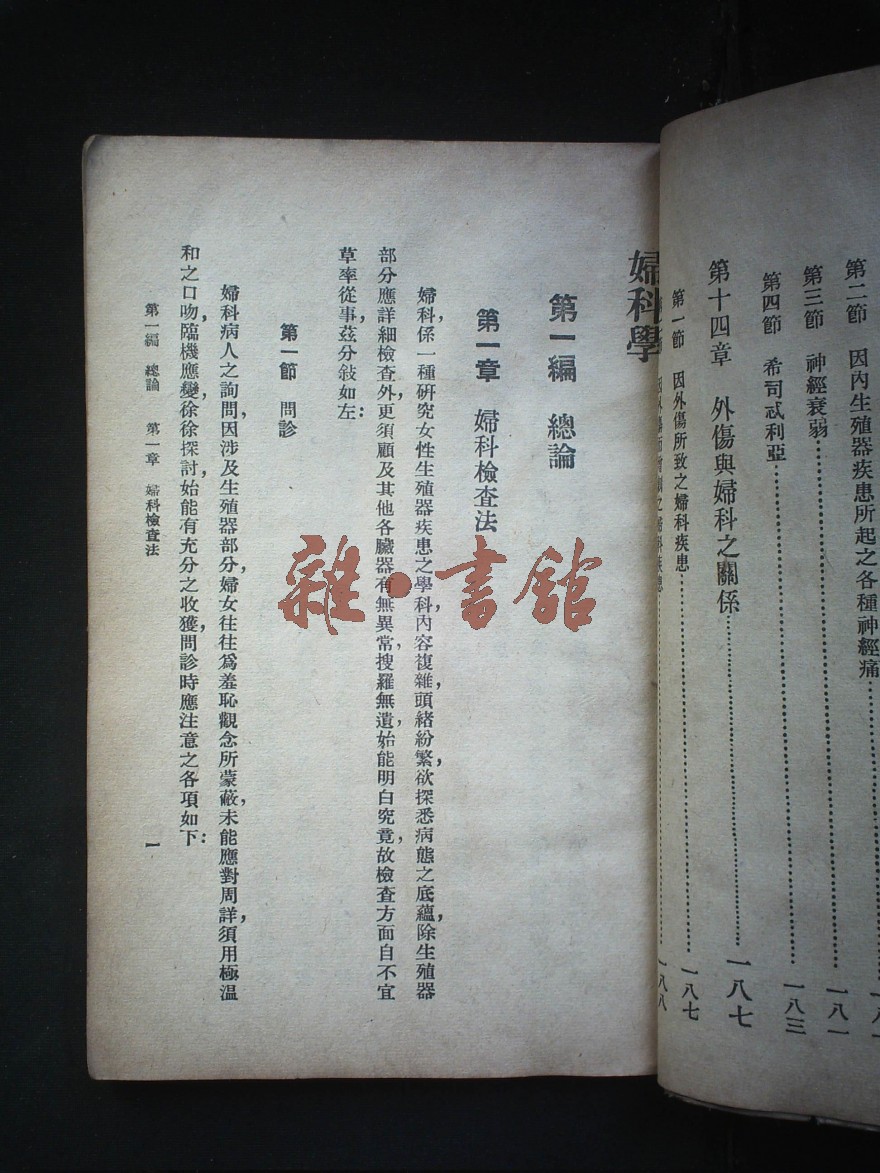 第二節 因內生殖器疾患所起之各種神經痛
第三節 神經衰弱……一八一
第四節 希司忒利亞……一八三
第十四章 外傷與婦科之關係……一八七
第一節 因外傷所致之婦科疾患……一八七
一八八
婦科學
第一編 總論
第一章 婦科檢查法
婦科,係一種研究女性生殖器疾患之學科,內容複雜,頭緒紛繁,欲探悉病態之底蘊,除生殖器
部分應詳細檢查外,更須顧及其他各臟器有無異常,搜羅無遺,始能明白究竟,故檢查方面,自不宜
草率從事,茲分敍如左:
第一節 問診
婦科病人之詢問,因涉及生殖器部分,婦女往往爲羞恥觀念所蒙蔽,未能應對周詳,須用極溫
和之口吻,臨機應變,徐徐探討,始能有充分之收獲,問診時應注意之各項如下:
第一編 總論 第一章 婦科檢查法
一
雜·書館